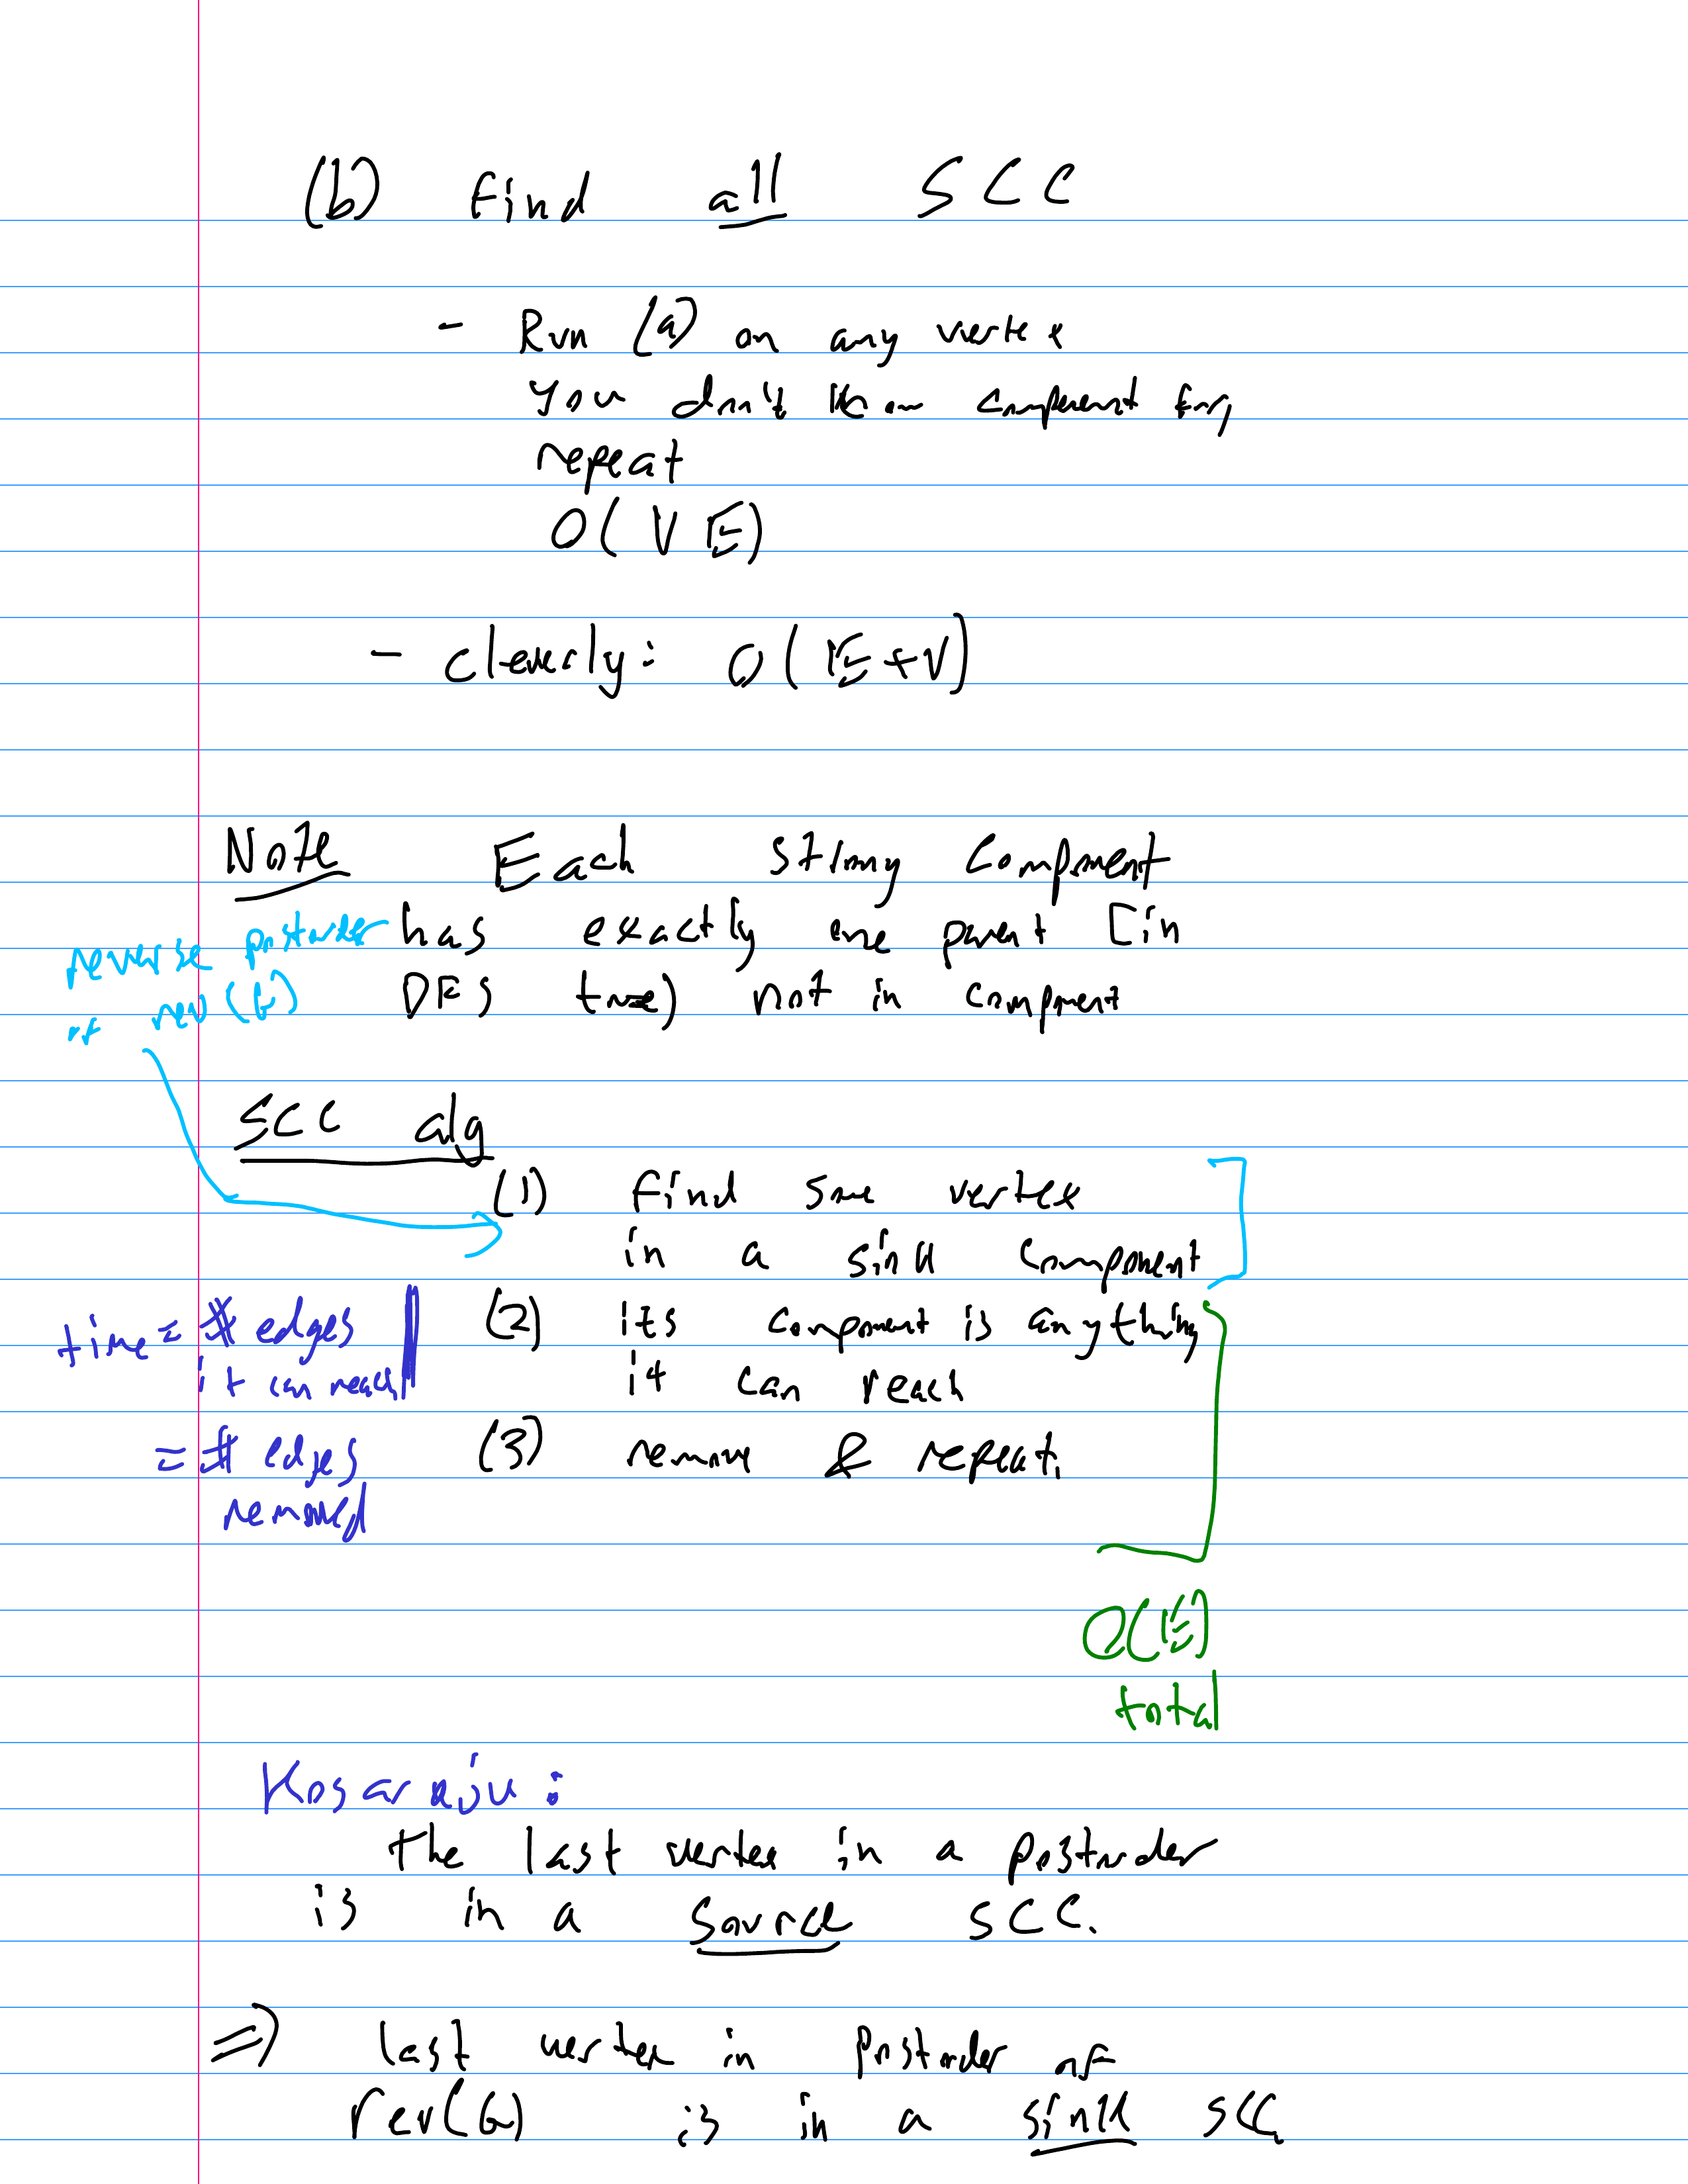 (b) Find all SCC
- Run (a) on any vertex
you don't know component for,
repeat
O(VE)
- cleverly: O(E+V)
Note Each strong component
has exactly one parent [in
DFS tree) not in component
reverse postorder
of rev(G)
SCC alg
(1) Find some vertex
in a sink component
(2) its component is anything
it can reach
(3) remove & repeat.
time = # edges
it can reach
= # edges
removed
O(E)
total
Kosaraju:
the last vertex in a postorder
is in a source SCC.
⇒ last vertex in postorder of
rev(G) is in a sink SCC